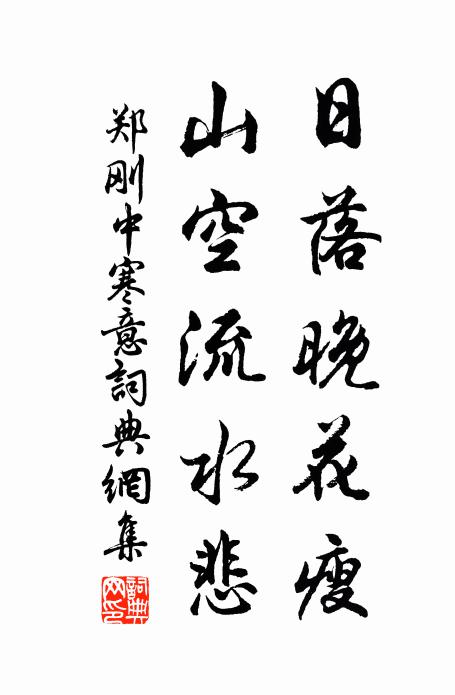 日落晚花瘦
山空流水悲
郑刚中寒意詞典網集
詞典網印